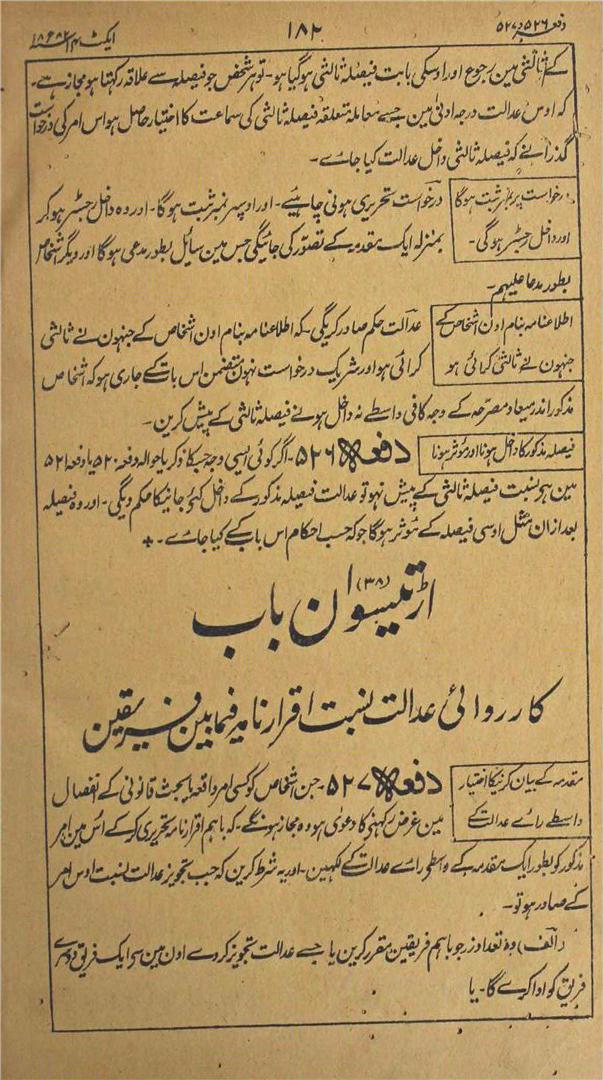 دفعہ ۵۲۶ و ۵۲۷
۱۸۲
ایکٹ ۱۴ ۱۸۸۲
کے ثالثی مین رجوع اور اوسکی بابت فیصلۂ ثالثی ہوگیا ہو۔ تو ہر شخص جو فیصلہ سے علاقہ رکہتا ہو مجاز ہے۔
کہ اوس عدالت درجہ ادنیٰ مین جسے معاملہ متعلقہ فیصلۂ ثالثی کی سماعت کا اختیار حاصل ہو اس امر کی درخواست
گذرانے کہ فیصلۂ ثالثی داخل عدالت کیا جاے۔
درخواست پر نمبر ثبت ہوگا
اور داخل رجسٹر ہوگی۔
درخواست تحریری ہونی چاہیے۔ اور اوسپر نمبر ثبت ہوگا۔ اور وہ داخل رجسٹر ہوکر
بمنزلہ ایک مقدمہ کے تصور کی جائیگی جس مین سائل بطور مدعی ہوگا اور دیگر اشخاص
بطور مدعا علیہم۔
اطلاعنامہ بنام اون اشخاص کے
جنہون نے ثالثی کرائی ہو
عدالت حکم صادر کریگی۔ کہ اطلاعنامہ بنام اون اشخاص کے جنہون نے ثالثی
کرائی ہو اور شریک درخواست نہون متضمن اس بات کے جاری ہو کہ اشخاص
مذکور اندر میعاد مصرحہ کے وجہ کافی واسطے نہ داخل ہونے فیصلۂ ثالثی کے پیش کرین۔
فیصلہ مذکور کا داخل ہونا اور موثر ہونا
دفعہ ۵۲۶۔ اگر کوئی ایسی وجہ جسکا ذکر یا حوالہ دفعہ ۵۲۰ یا دفعہ ۵۲۱
مین ہے بنسبت فیصلۂ ثالثی کے پیش نہو تو عدالت فیصلہ مذکور کے داخل کئے جانیکا حکم دیگی۔ اور وہ فیصلہ
بعد ازان مثل اوسی فیصلہ کے موثر ہوگا جو کہ حسب احکام اس باب کے کیا جاے۔
اڑتیسوان (۳۸) باب
کارروائی عدالت بنسبت اقرار نامہ فیمابین فریقین
مقدمہ کے بیان کرنیکا اختیار
واسطے راے عدالت کے
دفعہ ۵۲۷۔ جن اشخاص کو کسی امر واقعہ یا بحث قانونی کے انفصال
مین غرض رکہنے کا دعویٰ ہو وہ مجاز ہونگے۔ کہ باہم اقرار نامہ تحریری کرکے اس مین امر
مذکور کو بطور ایک مقدمہ کے واسطے راے عدالت کے لکہین۔ اور یہ شرط کرین کہ جب تجویز عدالت بنسبت اوس امر
کے صادر ہو تو۔
(الف) وہ تعداد زر جو باہم فریقین مقرر کرین یا جسے عدالت تجویز کردے اون مین سے ایک فریق دوسرے
فریق کو ادا کرے گا۔ یا